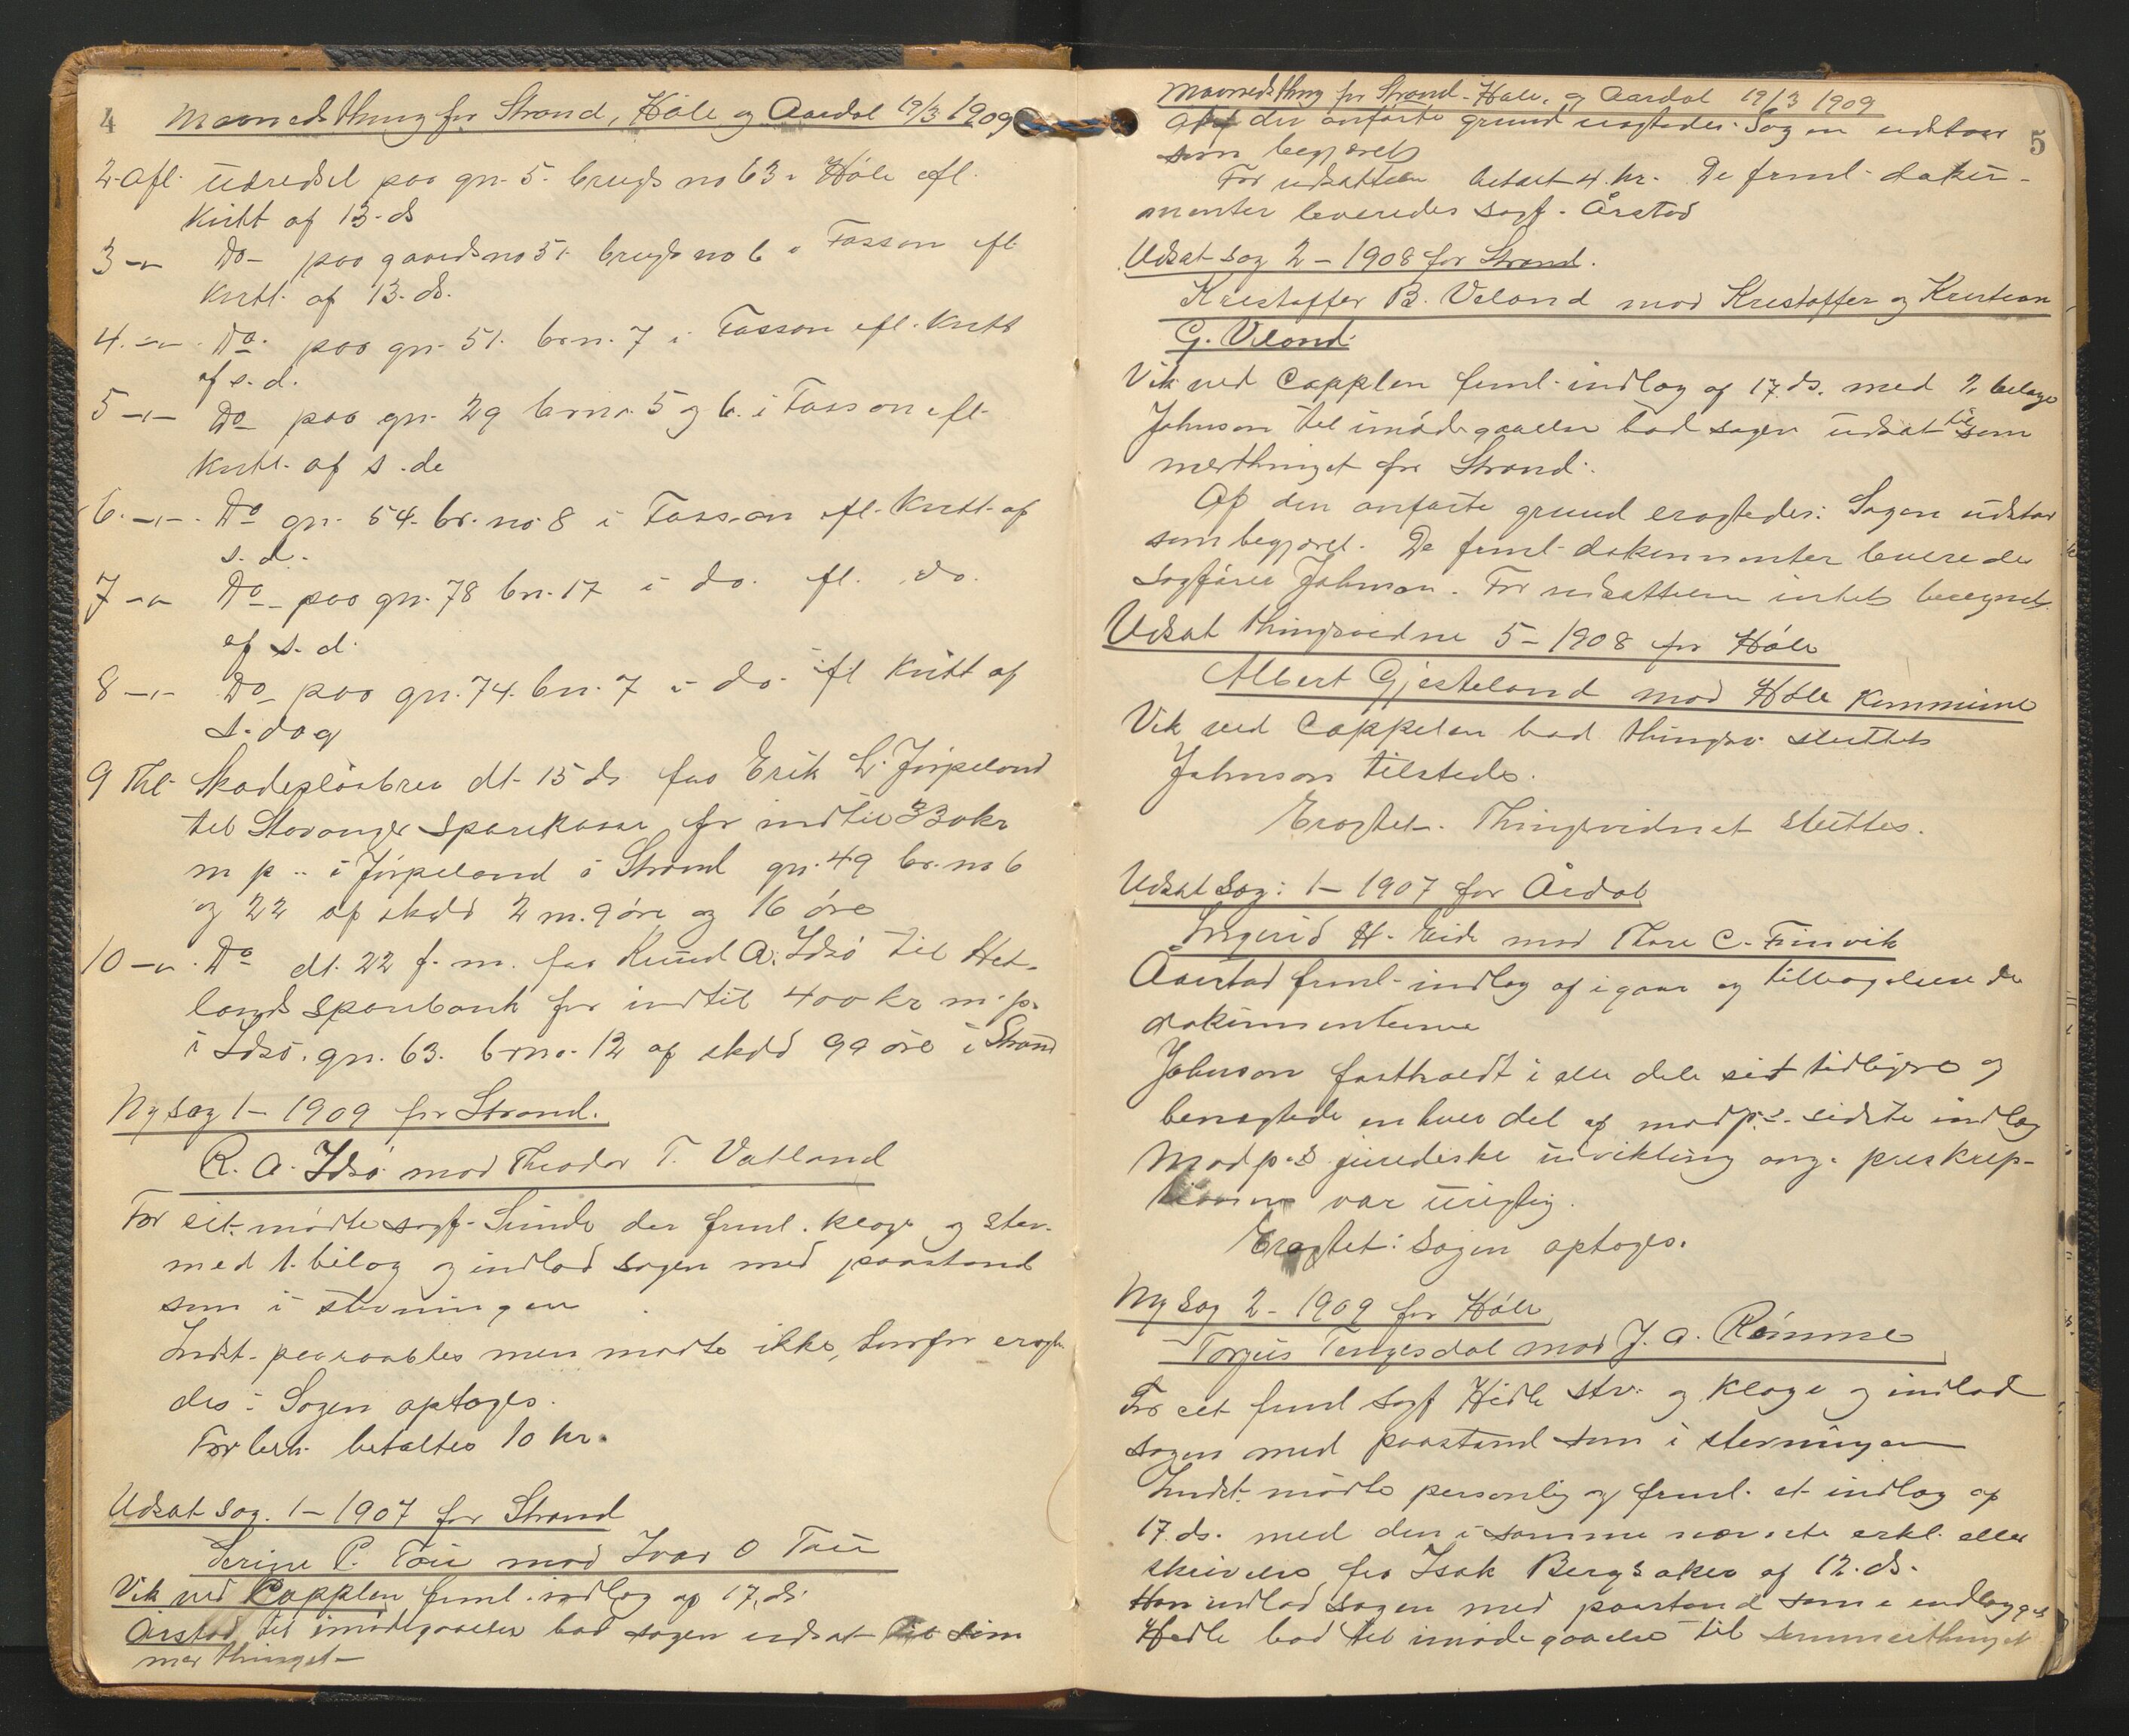 4 Maanedsthing for Strand, Höle og Aardal 19/3 1909
2. afl. Udredsel paa gn. 5. brugs no 63 i Höle efl.
Kvitt af 13. ds
3 -"- Do paa gaards no 51. brugs no 6 i Fossan efl.
Kvitt. af 13. ds.
4. -"- Do. paa gn. 51. brn. 7 i Fossan efl. Kvitt
af s. d.
5 -"- Do paa gn. 29 brno. 5 og 6. i Fossan efl.
Kvitt. af s. da
6. -"- Do gn. 54. br. no. 8 i Fossan efl. Kvitt. af
s. d.
7 -"- Do paa gn. 78 bn. 17 i do. efl. do.
af s. d.
8 -"- Do paa gn. 74. bn. 7 i do. efl Kvitt af
s. dag
9 Thl. Skadeslösbrev dt. 15 ds fra Erik L. Jörpeland
til Stavanger Sparekasse for indtil 330 kr
m p .. i Jörpeland i Strand gn. 49 br. no 6
og 22 af skyld 2 m. 9 öre og 16 öre
10 -"- Do dt. 22 f. m. fra Knud A. Idsö til Het-
lands Sparebank for indtil 400 kr m. p.
i Idsö. gn. 63. brno. 12 af skyld 99 öre i Strand
Ny sag 1 - 1909 for Strand.
R. A. Idsö mod Theodor T. Vatland
For cit. mödte sagf. Sunde der freml. klage og stev.
med 1. bilag og indlod sagen med paastand
som i stevningen
Indst. paaraabtes men mødte ikke, hvorfor eragte-
des: Sagen optages.
For beh. betaltes 10 kr.
Udsat sag. 1 - 1907 for Strand
Serine P. Tou mod Ivar O Tou
Vik ved Cappelen freml. indlæg af 17. ds.
Årstad til imödegaaelse bad sagen udsat til som
merthinget -
Maanedsthing for Strand. Höle, og Aardal 19/3 1909
5
Af den anförte grund eragtedes: Sagen udstaar
som begjæret
For udsættelsen betalt 4 kr. De freml. doku-
menter leveredes sagf. Årstad
Udsat sag 2 - 1908 for Strand.
Kristoffer B. Veland mod Kristoffer og Kristian
G. Veland.
Vik ved Cappelen freml. indlæg af 17. ds. med 2 bilage
Johnson til imödegaaelse bad sagen udsat til som
merthinget for Strand.
Af den anförte grund eragtedes: Sagen udstaar
som begjæret. De freml. dokumenter leveredes
Sagförer Johnson. For udsættelsen intet beregnet
Udsat thingsvidne 5 - 1908 for Höle
Albert Gjesteland mod Höle Kommune
Vik ved Cappelen bad thingsv. sluttet
Johnson tilstede.
Eragtet. Thingsvidnet sluttes.
Udsat Sag: 1 - 1907 for Årdal
Ingerid H. Eide mod Thore C. Finvik
Aarstad freml. indlæg af igaar og tilbagelevere de
dokumenterne
Johnson fastholdt i alle dele sit tidligere og
benegtede enhver del af modp.s. sidste indlæg
Modp.s juridiske udvikling ang. preskrip-
tionen var urigtig.
Eragtet: Sagen optages.
Ny Sag 2 - 1909 for Höle
Torjus Tengesdal mod J. A. Römme
For cit freml sagf Hidle stv. og Klage og indlod
sagen med paastand som i stevningen
Indst. mödte personlig og freml. et indlæg af
17. ds. med den i samme nævnte erkl. eller
skrivelse fra Isak Bergsaker af 12. ds.
Han indlod sagen med paastand som i indlægget
Hidle bad til imödegaaelse til sommerthinget